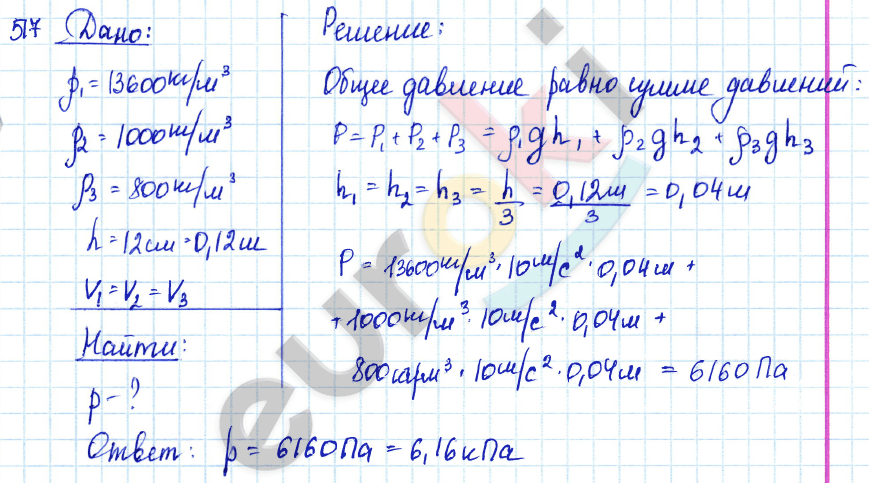 517 Дано:
ρ₁ = 13600кг/м³
ρ₂ = 1000кг/м³
ρ₃ = 800кг/м³
h = 12см = 0,12м
V₁ = V₂ = V₃
Найти:
p - ?
Решение:
Общее давление равно сумме давлений:
P = P₁ + P₂ + P₃ = ρ₁gh₁ + ρ₂gh₂ + ρ₃gh₃
h₁ = h₂ = h₃ = h/3 = 0,12м/3 = 0,04м
P = 13600кг/м³ · 10м/с² · 0,04м +
+ 1000кг/м³ · 10м/с² · 0,04м +
800кг/м³ · 10м/с² · 0,04м = 6160Па
Ответ: p = 6160Па = 6,16кПа
euroki